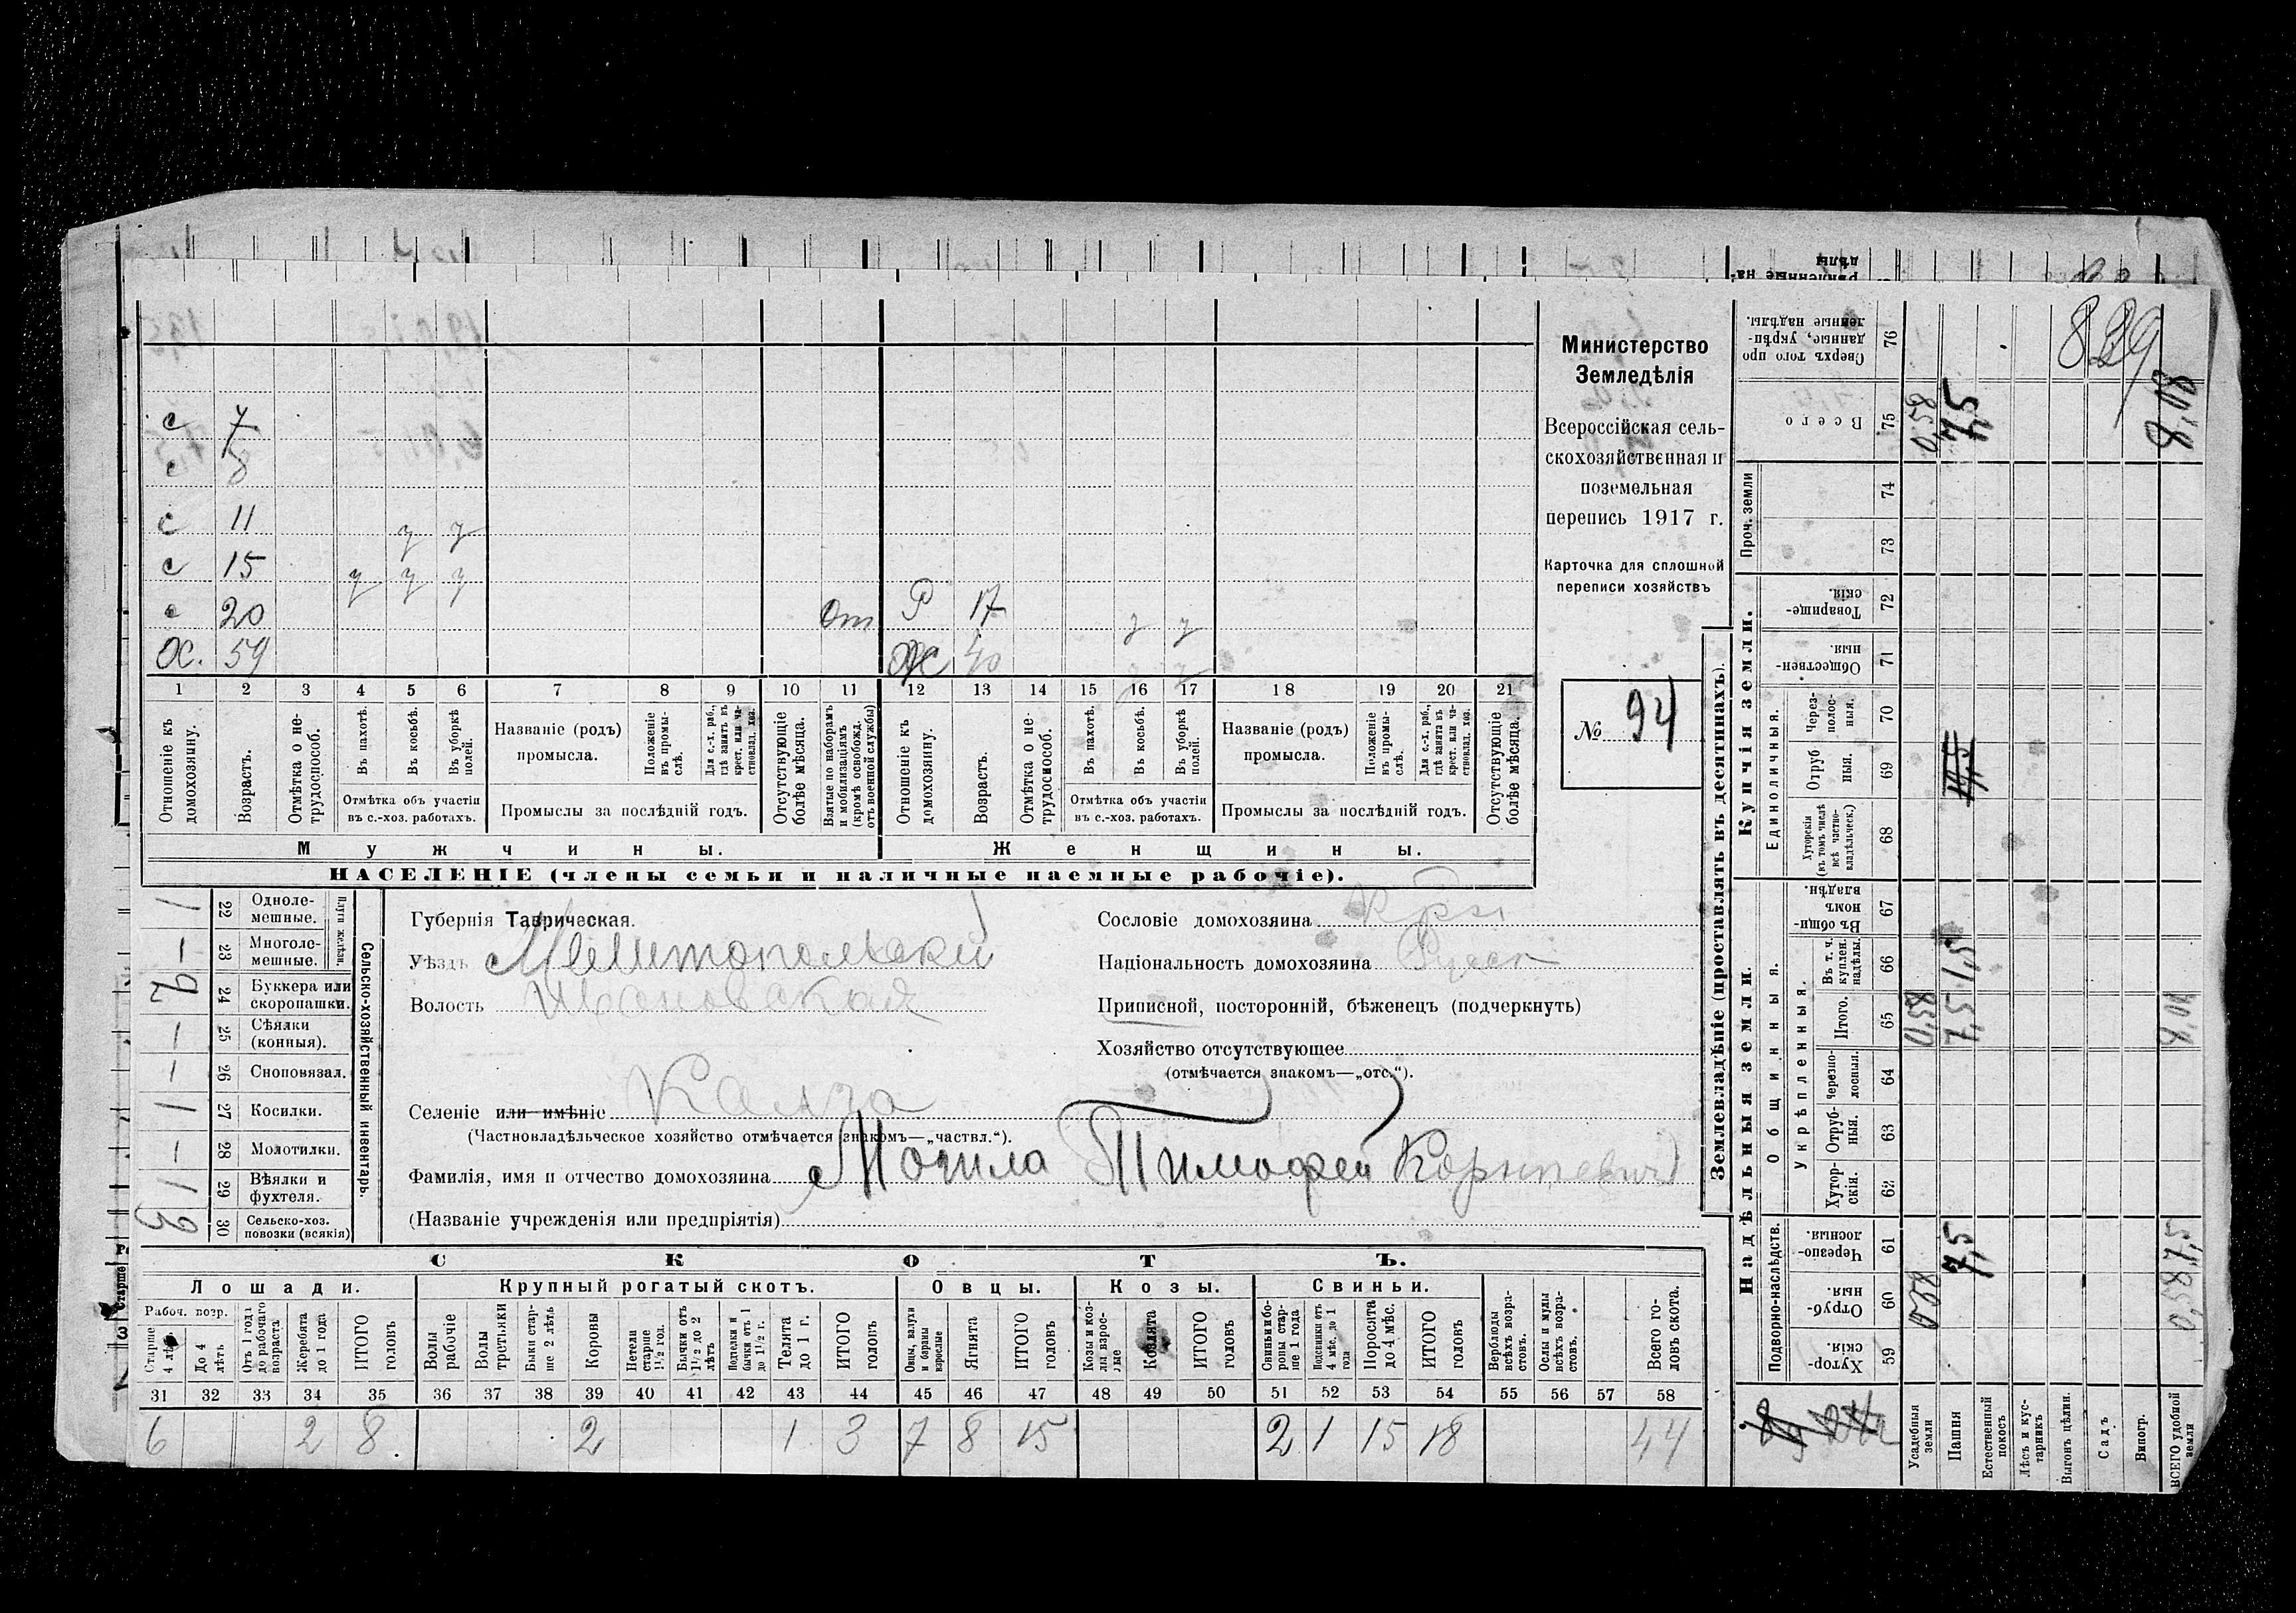 Министерство
Земледѣлія
Всероссійская сель-
скохозяйственная и
поземельная
перепись 1917 г.
Карточка для сплошной
переписи хозяйствъ
№ 94
839
с 7
с 8
с 11 у у
с 15 у у у
с 20 От Р 17 у у
Х. 59 Ж 40 у у
1 2 3 4 5 6 7 8 9 10 11 12 13 14 15 16 17 18 19 20 21
Отношеніе къ домохозяину.
Возрастъ.
Отмѣтка о не-трудоспособ.
Въ пахотѣ.
Въ косьбѣ.
Въ уборкѣ полей.
Отмѣтка объ участіи
въ с.-хоз. работахъ.
Названіе (родъ)
промысла.
Положеніе въ промы-слѣ.
Для с.-х. раб., гдѣ занятъ въ крест. или ча-стновлад. хоз.
Промыслы за послѣдній годъ.
Отсутствующіе болѣе мѣсяца.
Взятые по наборамъ и мобилизаціямъ (кромѣ освобожд. отъ военной службы)
Отношеніе къ домохозяину.
Возрастъ.
Отмѣтка о не-трудоспособ.
Въ пахотѣ.
Въ косьбѣ.
Въ уборкѣ полей.
Отмѣтка объ участіи
въ с.-хоз. работахъ.
Названіе (родъ)
промысла.
Положеніе въ промы-слѣ.
Для с.-х. раб., гдѣ занята въ крест. или ча-стновлад. хоз.
Промыслы за послѣдній годъ.
Отсутствующіе болѣе мѣсяца.
Мужчины. Женщины.
НАСЕЛЕНІЕ (члены семьи и наличные наемные рабочіе).
Сельско-хозяйственный инвентарь.
Плуги желѣзн.
22 Однoле-мешные. 1
23 Многоле-мешные. –
24 Буккера или скоропашки. 2
25 Сѣялки (конныя). –
26 Сноповязал. –
27 Косилки. 1
28 Молотилки. –
29 Вѣялки и фухтеля. 1
30 Сельско-хоз. повозки (всякія) 3
Губернія Таврическая.
Уѣздъ Мелитопольский
Волость Ивановская
Селеніе или имѣніе Калга
(Частновладѣльческое хозяйство отмѣчается знакомъ—„частвл.“).
Фамилія, имя и отчество домохозяина Могила Тимофей Корнпевич
(Названіе учрежденія или предпріятія)
Сословіе домохозяина Крес
Національность домохозяина Русск
Приписной, посторонній, бѣженецъ (подчеркнуть)
Хозяйство отсутствующее
(отмѣчается знакомъ—„отс.“).
СКОТЪ.
Лошади. Крупный рогатый скотъ. Овцы. Козы. Свиньи.
Рабоч. возр.
Старше 4 лѣтъ
До 4 лѣтъ
Отъ 1 года до рабочаго возраста
Жеребята до 1 года
ИТОГО головъ
Волы рабочіе
Волы третьяки
Быки стар-ше 2 лѣтъ
Коровы
Нетели старше 1½ год.
Бычки отъ 1½ до 2 лѣтъ
Подтелки и бычки отъ 1 до 1½ г.
Телята до 1 г.
ИТОГО головъ
Овцы, валухи и бараны взрослые
Ягнята
ИТОГО головъ
Козы и коз-лы взрос-лые
Козлята
ИТОГО головъ
Свиньи и бо-ровы стар-ше 1 года
Подсвинки отъ 4 мѣс. до 1 года
Поросята до 4 мѣс.
ИТОГО головъ
Верблюды всѣхъ возра-стовъ.
Ослы и мулы всѣхъ возра-стовъ.
Всего го-ловъ скота.
31 32 33 34 35 36 37 38 39 40 41 42 43 44 45 46 47 48 49 50 51 52 53 54 55 56 57 58
6 2 8 2 1 3 7 8 15 2 1 15 18 44
Землевладѣніе (проставлять въ десятинахъ).
Надѣльныя земли. Купчія земли.
Подворно-наслѣдств.
Общинныя.
Укрѣпленныя.
Единоличныя.
Проч. земли
59 Хутор-скія.
60 Отруб-ныя.
61 Черезпо-лосныя.
62 Хутор-скія.
63 Отруб-ныя.
64 Черезпо-лосныя.
65 Итого.
66 Въ т. ч. куплен. надѣлы.
67 Въ общи-нномъ владѣн.
68 Хуторскія (въ томъ числѣ всѣ частно-владѣльческ.)
69 Отруб ныя.
70 Через-полос-ныя.
71 Обществен-ныя.
72 Товарище-скія.
73
74
75 Всего
76 Сверхъ того про данные, укрѣп-ленные надѣлы.
Усадебныя земли 0,58 0,58
Пашня 7,5 7,5 7,5
Естественный покосъ
Лѣсъ и кус-тарникъ
Выгонъ цѣлин.
Садъ
Виногр.
ВСЕГО удобной земли 8,08 8,08